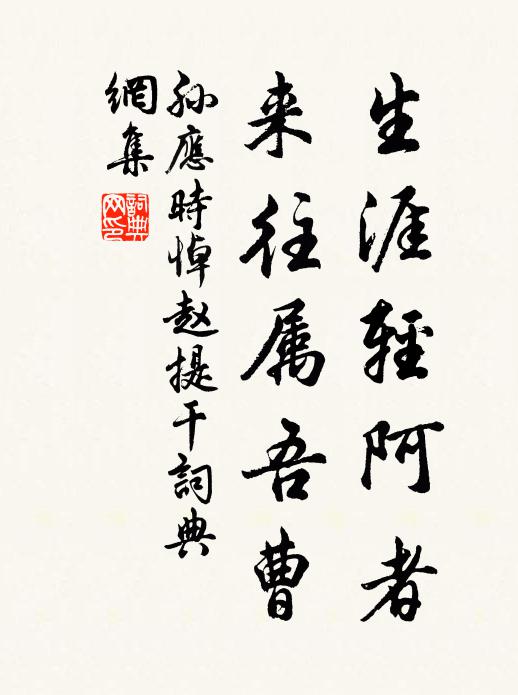 生涯輕阿者
来往属吾曹
孙應時悼赵提干詞典
網集
詞典网印